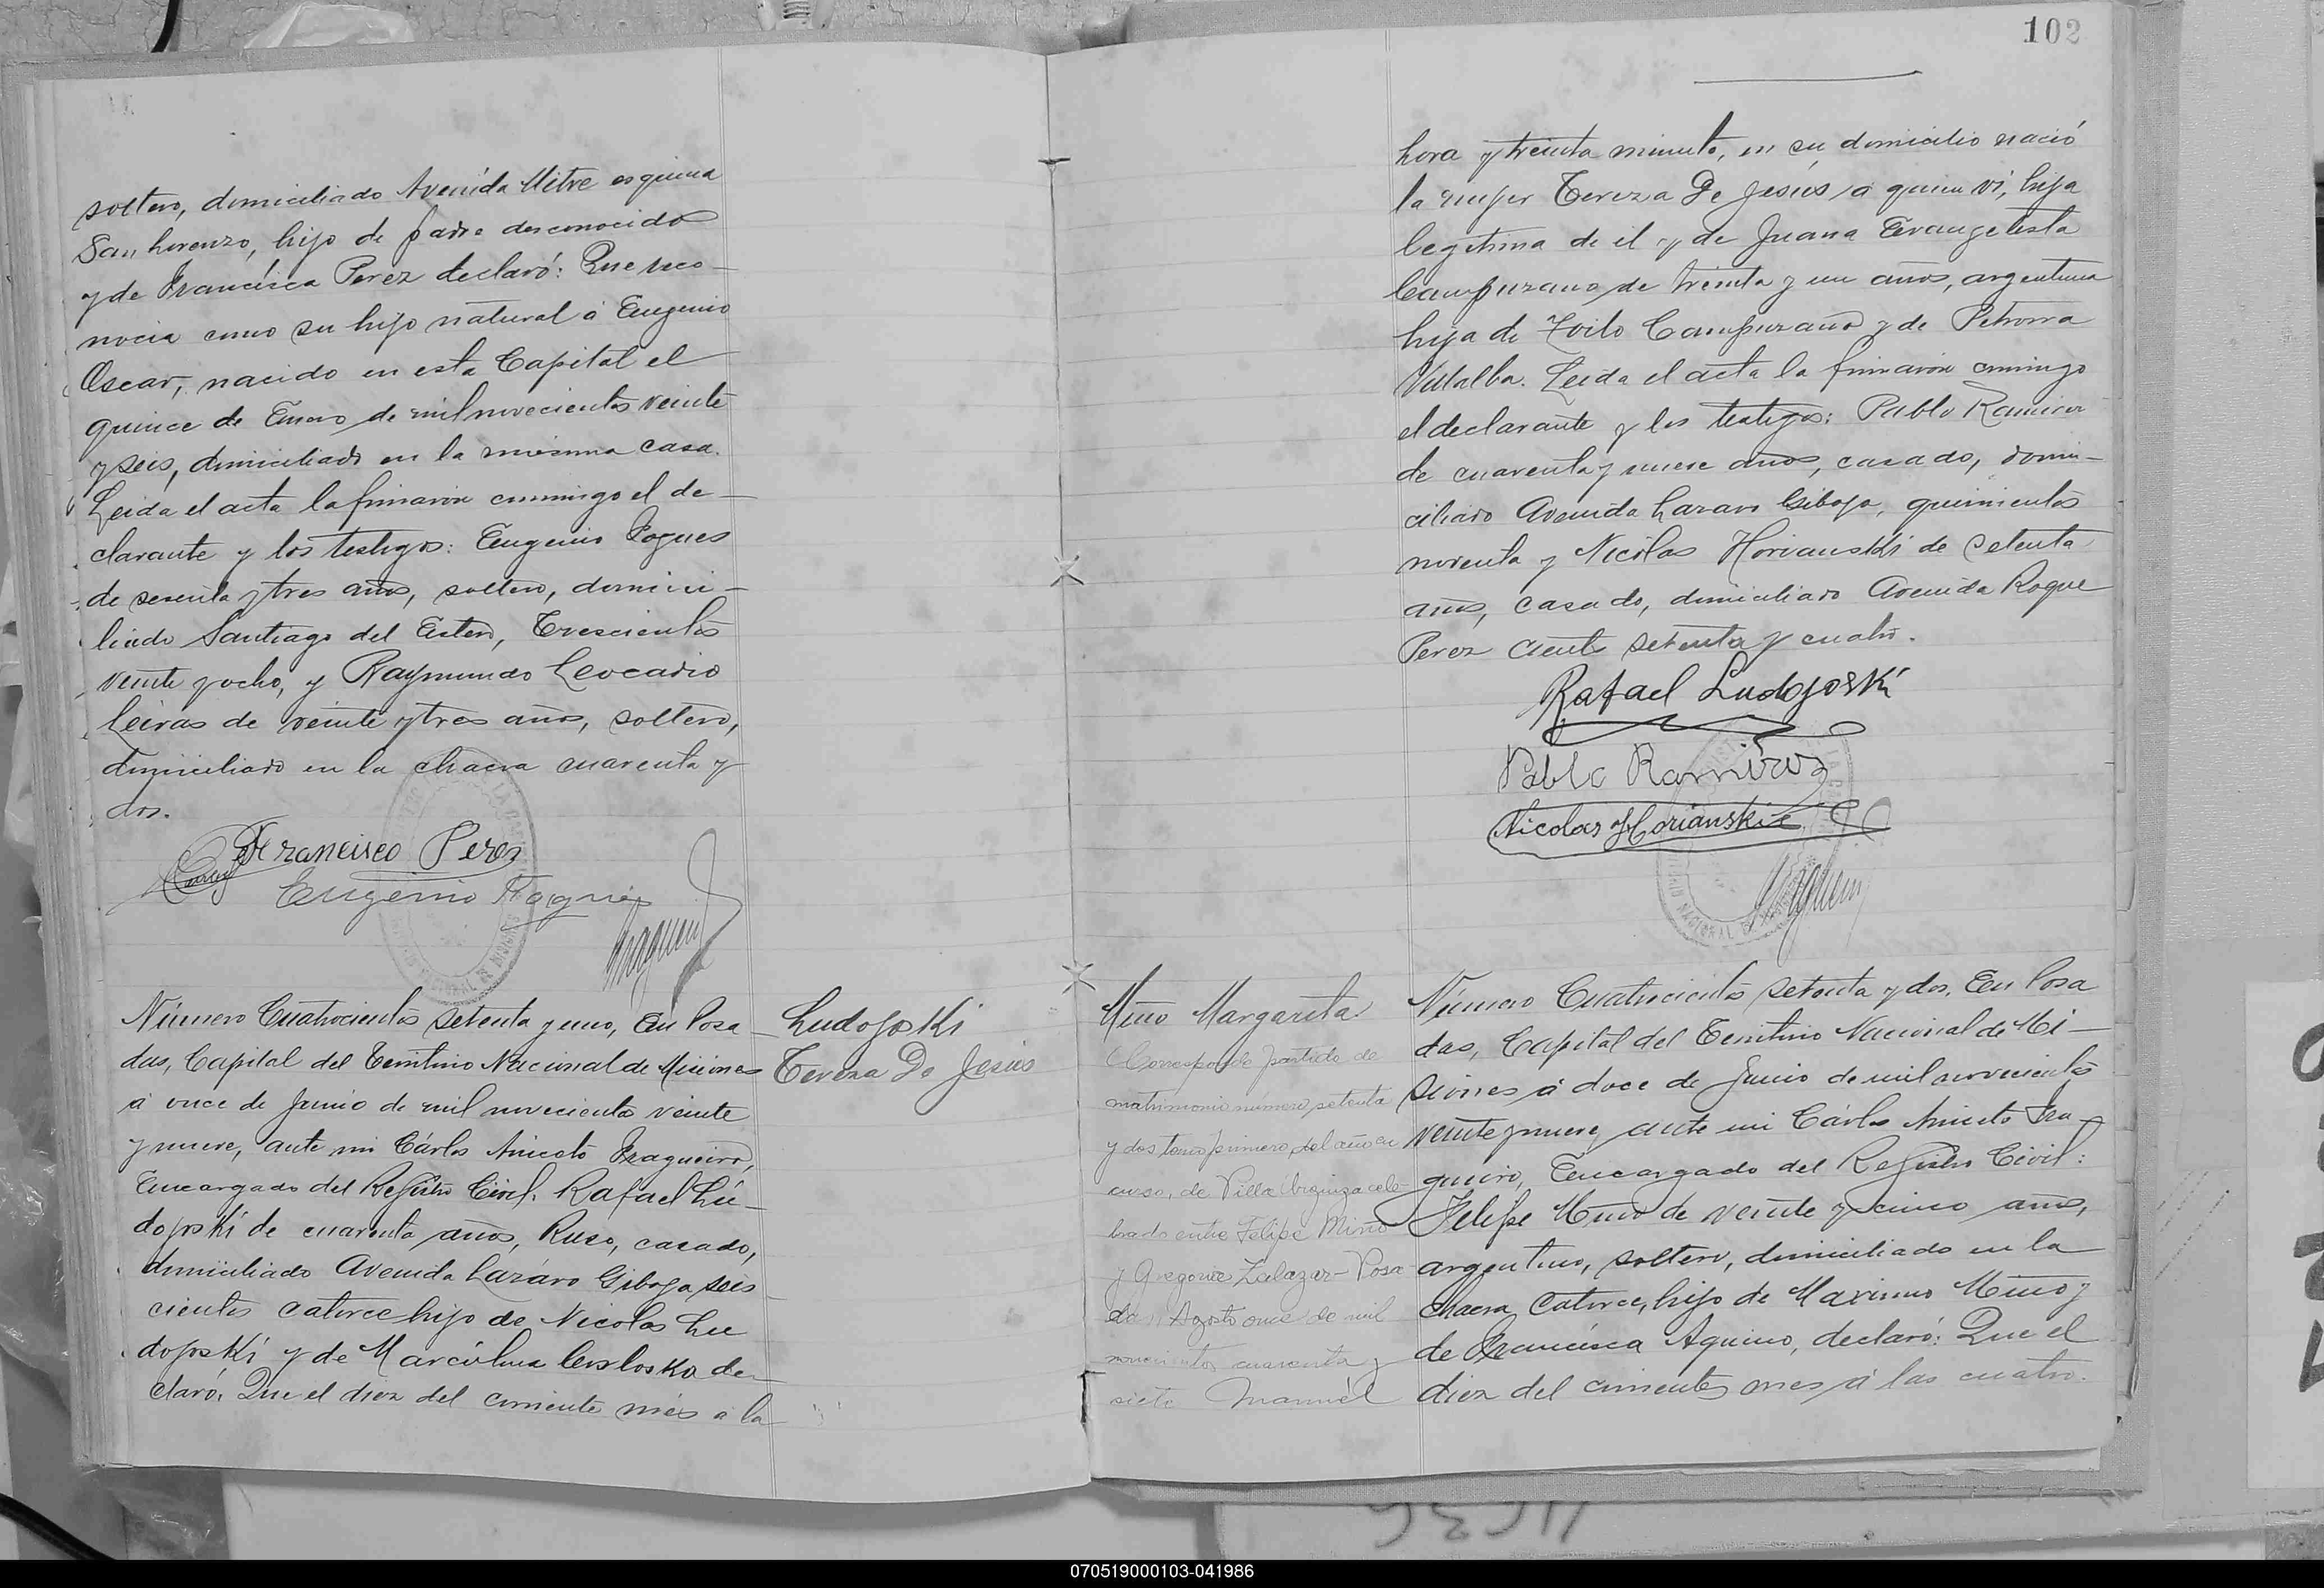 soltero, domiciliado Avenida Mitre esquina
San Lorenzo, hijo de padre desconocido
y de Francisca Perez declaró: Que reco-
nocia como su hijo natural á Eugenio
Oscar, nacido en esta Capital el
quince de Enero de mil novecientos veinte
y seis, domiciliado en la misma casa.
Leida el acta la firmaron conmigo el de-
clarante y los testigos: Eugenio
de sesenta y tres años, soltero, domici-
liado Santiago del Estero, Trescientos
veinte y ocho, y Raymundo Leocadio
Leiras de veinte y tres años, soltero,
domiciliado en la chacra cuarenta y
dos.
Francisco Perez
Eugenio
Número Cuatrocientos setenta y uno, En Posa-
das, Capital del Territorio Nacional de Misiones
á once de Junio de mil novecientos veinte
y nueve, ante mi Cárlos Aniceto Fragueiro,
Encargado del Registro Civil. Rafael Lu-
dojoski de cuarenta años, Ruso, casado,
domiciliado Avenida Lazaro Giboja seis
cientos catorce hijo de Nicolas Lu
dojoski y de de-
claró: Que el diez del corriente mes a la
Ludojoski
Tereza De Jesús
102
hora y treinta minuto, en su domicilio nació
la mujer Tereza De Jesús á quien vi, hija
legitima de él y de Juana Evangelista
Campuzano de treinta y un años, argentina
hija de Zoilo Campuzano y de Petrona
Villalba. Leida el acta la firmaron conmigo
el declarante y los testigos: Pablo Ramirez
de cuarenta y nueve años, casado, domi-
ciliado Avenida Lazaro Giboja, quinientos
noventa y Nicolas Horianski de setenta
años, casado, domiciliado Avenida Roque
Perez ciento setenta y cuatro.
Rafael Ludojoski
Pablo Ramirez
Nicolas Horianski
Miño Margarita
Corresponde partida de
matrimonio número setenta
y dos tomo primero del año en
curso, de Villa Urquiza cele-
brado entre Felipe Miño
y Gregoria Zalazar- Posa
das Agosto once de mil
novecientos cuarenta y
siete Manuel
Número Cuatrocientos setenta y dos, En Posa
das, Capital del Territorio Nacional de Mi-
siones á doce de Junio de mil novecientos
veinte y nueve, ante mi Cárlos Aniceto Fra-
gueiro, Encargado del Registro Civil:
Felipe Miño de veinte y cinco años,
argentino, soltero, domiciliado en la
chacra Catorce, hijo de Maximo Miño y
de Francisca Aquino, declaró: Que el
diez del corriente mes á las cuatro.
070519000103-041986